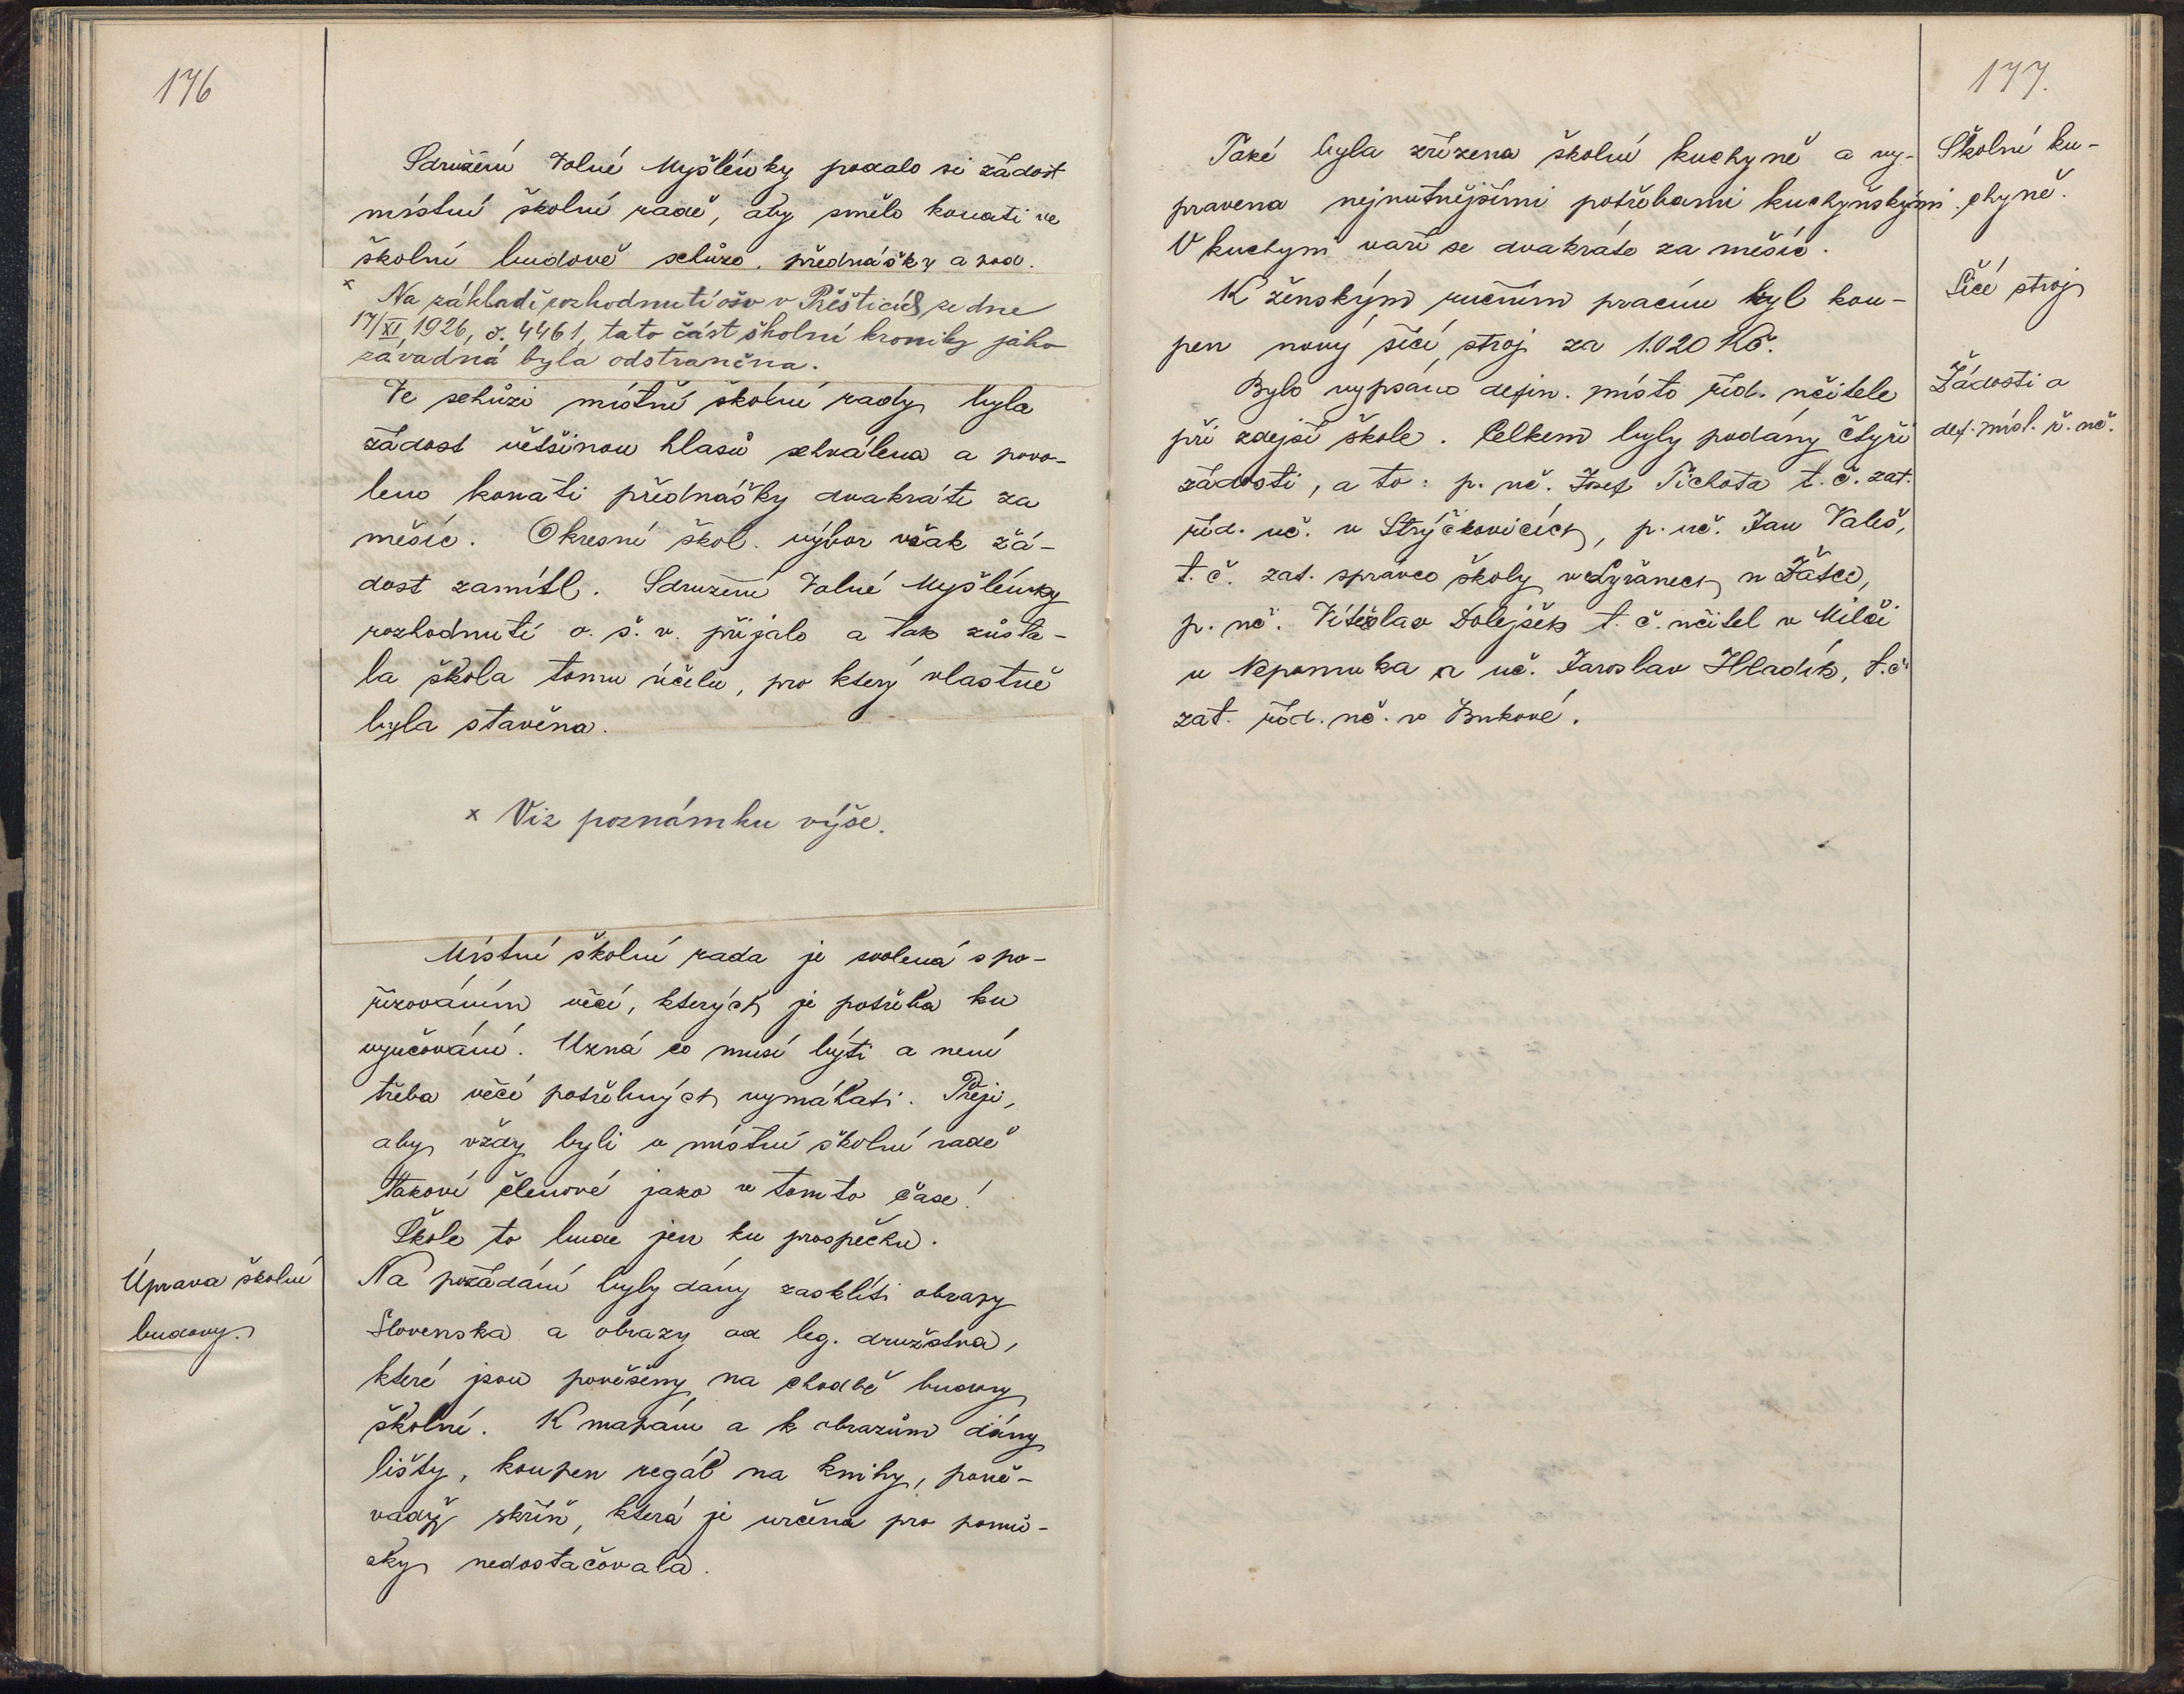 176
Sdružení Volné Myšlénky podalo si žádost
místní školní radě, aby smělo konati ve
školní budově schůze, přednášky a pod.
x Na základě rozhodnutí ošv v Přešticích ze dne
17/XI 1926, č. 4461, tato část školní kroniky jako
závadná byla odstraněna.
Ve schůzi místní školní rady byla
žádost většinou hlasů schválena a povo-
leno konati přednášky dvakráte za
měsíc. Okresní škol. výbor však žá-
dost zamítl. Sdružení Volné Myšlénky
rozhodnutí o. š. v. přijalo a tak zůsta-
la škola tomu účelu, pro který vlastně
byla stavěna.
x Viz poznámku výše.
Místní školní rada je svolená s po-
řizováním věcí, kterých je potřeba ku
vyučování. Uzná co musí býti a není
třeba věcí potřebných vymáhati. Přeji,
aby vždy byli v místní školní radě
takoví členové jako v tomto čase!
Škole to bude jen ku prospěchu.
Úprava školní
budovy.
Na požádání byly dány zasklíti obrazy
Slovenska a obrazy od leg. družstva,
které jsou pověšeny na chodbě budovy
školní. K mapám a k obrazům dány
lišty, koupen regál na knihy, poně-
vadž skříň, která je určena pro pomů-
cky nedostačovala.
177.
Také byla zřízena školní kuchyně a vy-
pravena nejnutnějšími potřebami kuchyňskými.
V kuchyni vaří se dvakráte za měsíc.
K ženským ručním pracím byl kou-
pen nový šicí stroj za 1.020 Kč.
Bylo vypsáno defin. místo říd. učitele
při zdejší škole. Celkem byly podány čtyři
žádosti, a to: p. uč. Josef Tichota t. č. zat.
říd. uč. v Strýčkovicích, p. uč. Jan Valeš,
t. č. zat. správce školy v Lyřanech u Žatce,
p. uč. Vítězslav Dolejšek t. č. učitel v Milči
u Nepomuka a uč. Jaroslav Hladík, t. č.
zat. říd. uč. v Bukové.
Školní ku-
chyně.
Šicí stroj
Žádosti o
def. míst. ř. uč.